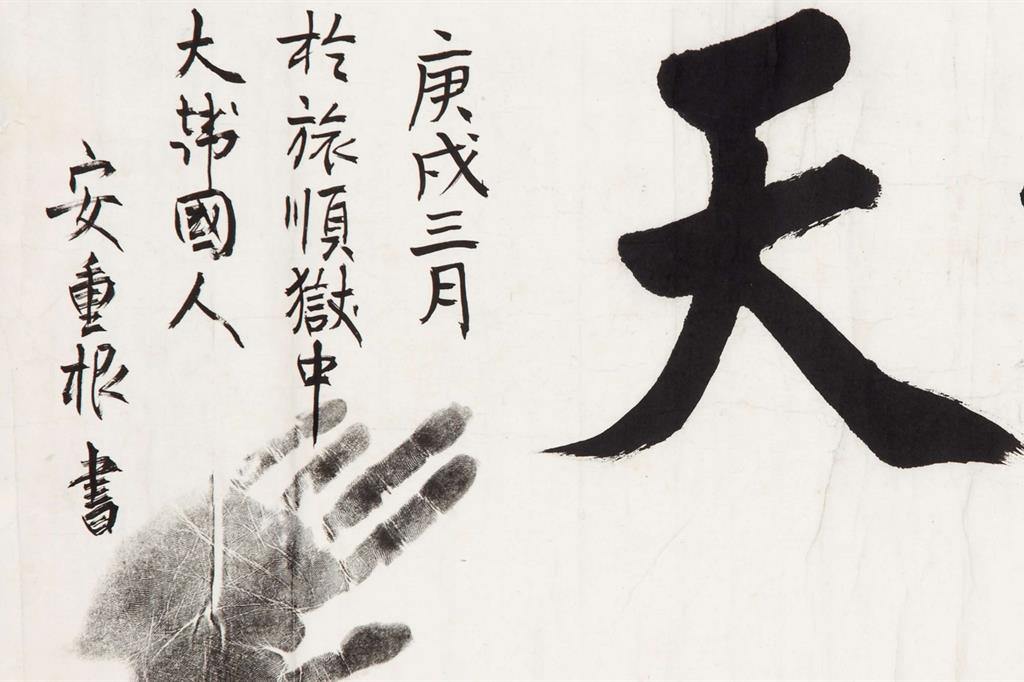 天
庚戌三月
於旅順獄中
大韓國人
安重根書